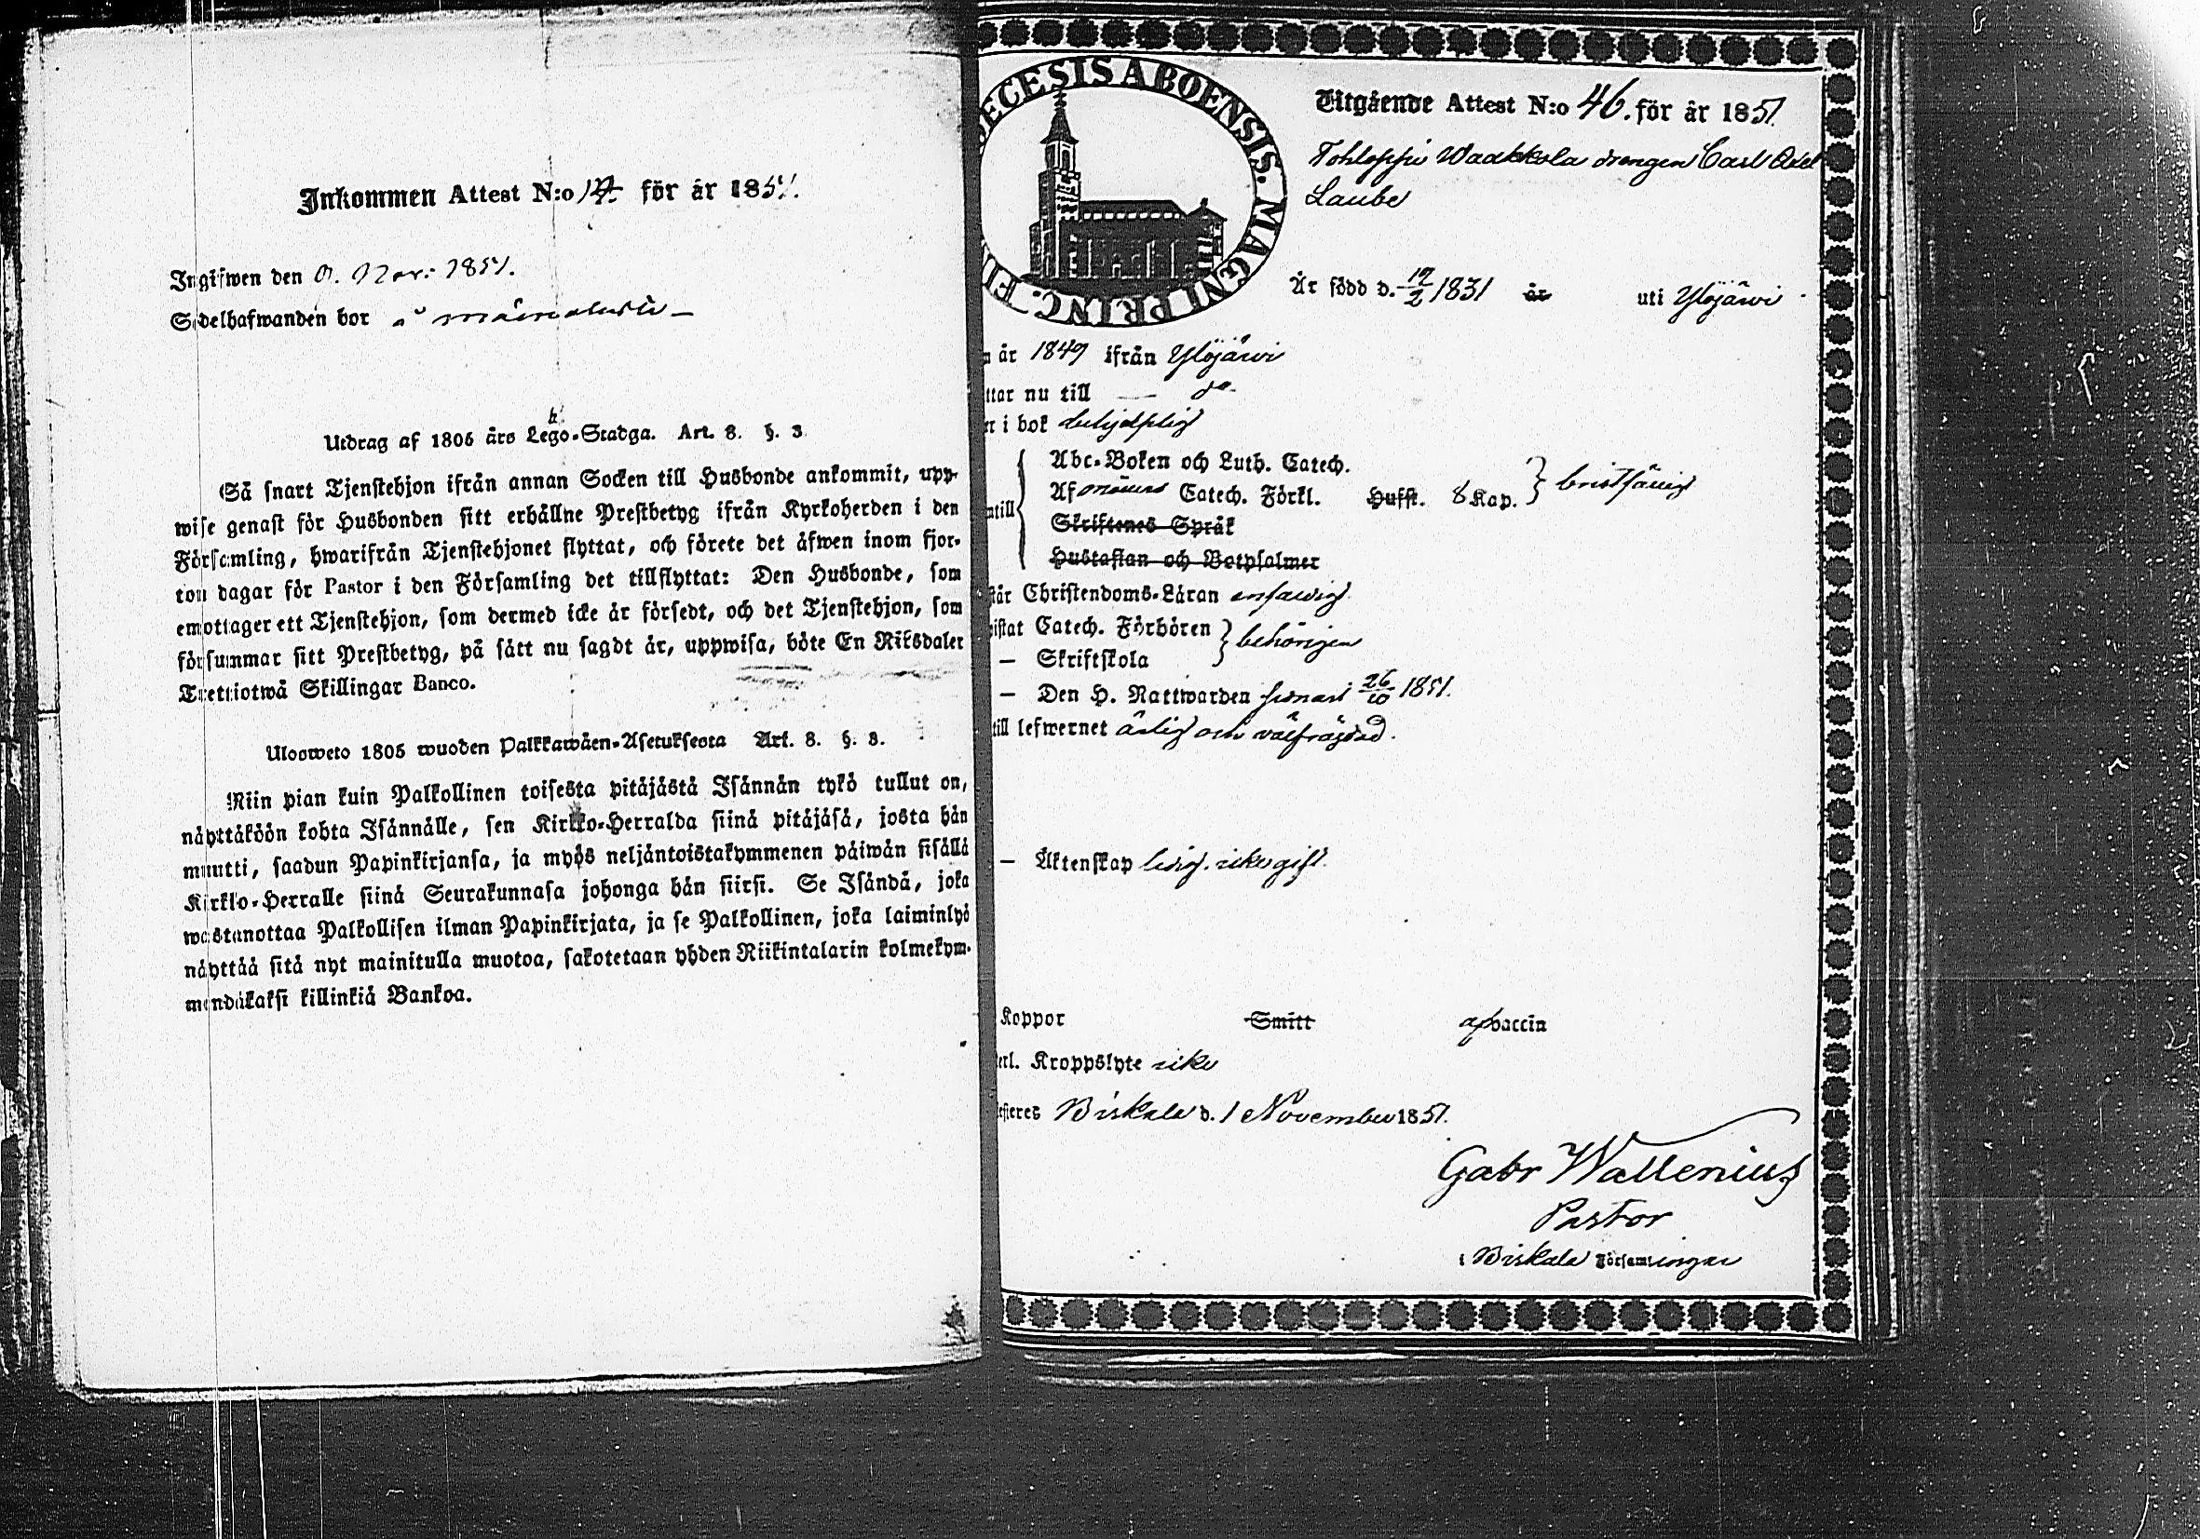 Inkommen Attest N:o för år 1851.
Ingifwen den Nov: 1851.
Sedelhafwanden bor
Utdrag af 1805 års Lego-Stadga. Art. 8. §. 3
Så snart Tjenstehjon ifrån annan Socken till Husbonde ankommit, upp-
wise genast för Husbonden sitt erhållne Prestbetyg ifrån Kyrkoherden i den
Församling, hwarifrån Tjenstehjonet flyttat, och förete det äfwen inom fjor-
ton dagar för Pastor i den Församling det tillflyttat: Den Husbonde, som
emottager ett Tjenstehjon, som dermed icke är försedt, och det Tjenstehjon, som
försummar sitt Prestbetyg, på sätt nu sagdt är, uppwisa, böte En Riksdaler
Trettiotwå Skillingar Banco.
Ulosweto 1805 wuoden Palkkawäen-Asetuksesta Art. 8. §. 3.
Niin pian kuin Palkollinen toisesta pitäjästä Isännän tykö tullut on,
näyttäköön kohta Isännälle, sen Kirkko-Herralda siinä pitäjäsä, josta hän
muutti, saadun Papinkirjansa, ja myös neljäntoistakymmenen päiwän sisällä
Kirkko-Herralle siinä Seurakunnasa johonga hän siirsi. Se Isändä, joka
wastanottaa Palkollisen ilman Papinkirjata, ja se Palkollinen, joka laiminlyö
näyttää sitä nyt mainitulla muotoa, sakotetaan yhden Riikintalarin kolmekym-
mendäkaksi killinkiä Bankoa.
DIOECESIS ABOENSIS. MAGNI PRINC. FIN
Utgående Attest N:o 46. för år 1851
Tohloppi Waakkola drengen Carl Axel
Laube
Är född d. 1831 år uti Ylöjärvi
år 1849 ifrån Ylöjärvi
ttar nu till — do
er i bok behjelplig
Abc-Boken och Luth. Catech.
Af Catech. Förkl. Hufst. 8 Kap. } bristfällig
ntill
Skriftenes Språk
Hustaflan och Botpsalmer
står Christendoms-Läran enfaldig
wistat Catech. Förhören } behörigen
— Skriftskola
— Den H. Nattwarden senast 26/10 1851.
till lefwernet ärlig och välfrägdad.
— Äktenskap ledig. icke gift.
Koppor Smitt af vaccin
erl. Kroppslyte icke
esteres Birkala d. 1 November 1851.
Gabr Wallenius
Pastor
i Birkala Församlingar